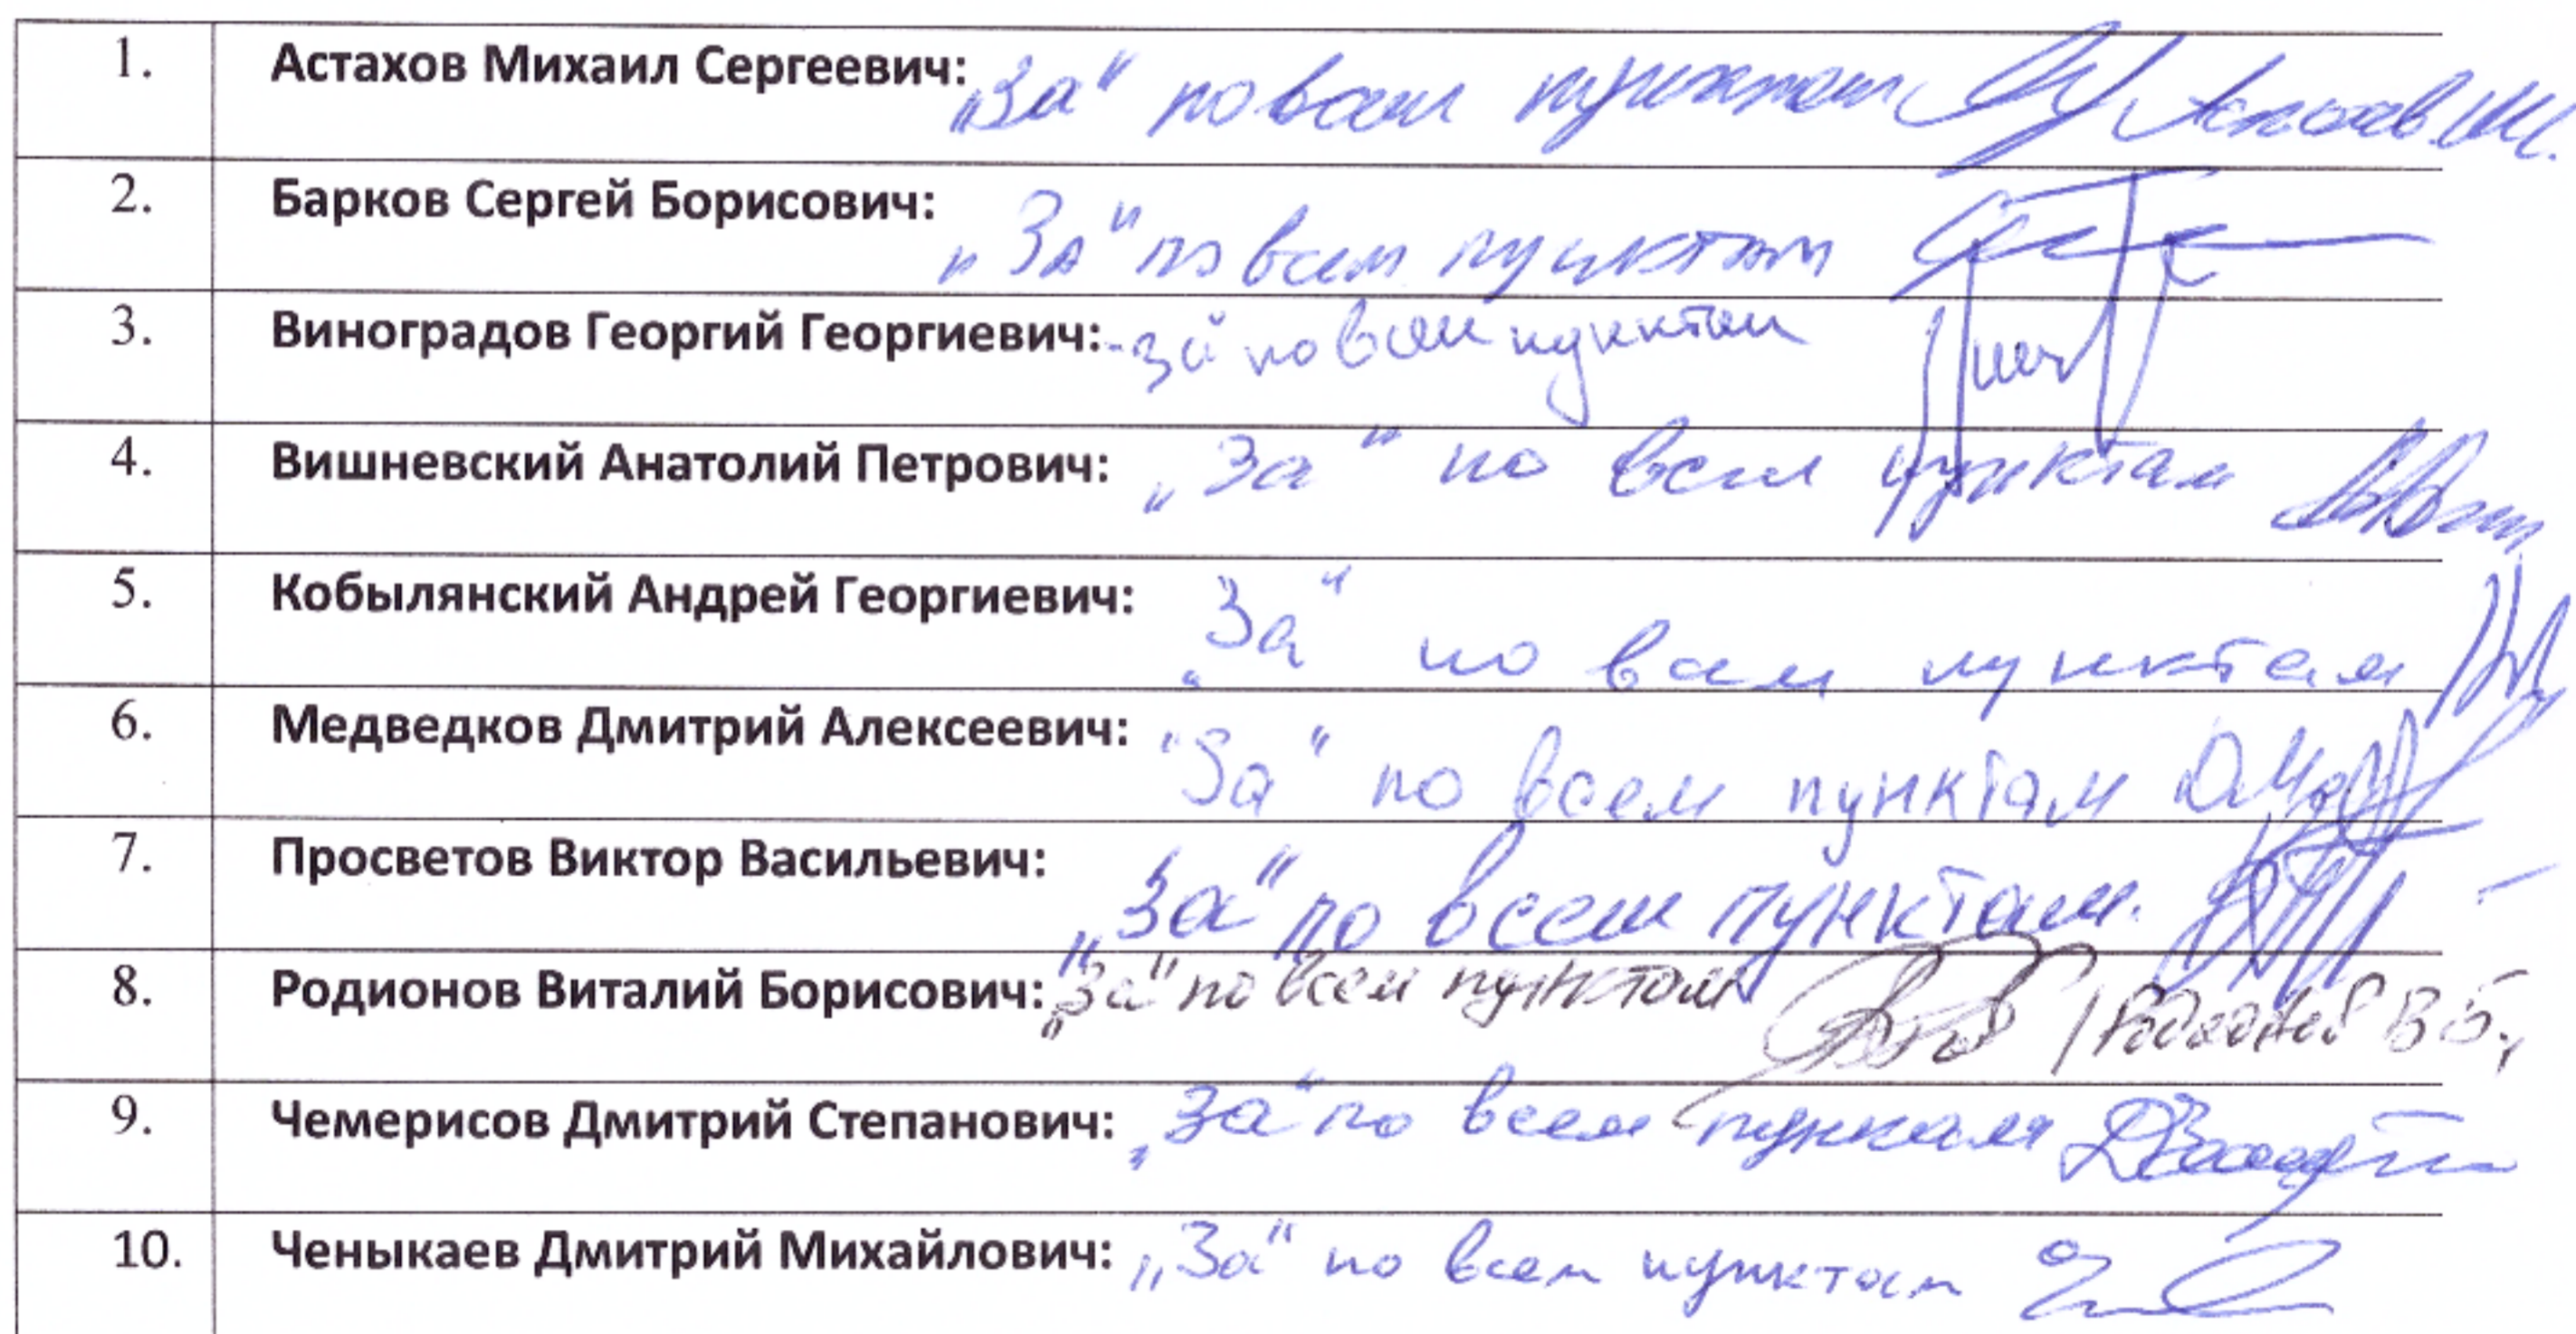 1. Астахов Михаил Сергеевич: „За“ по всем пунктам Астахов М.
2. Барков Сергей Борисович: „За“ по всем пунктам
3. Виноградов Георгий Георгиевич: - за по всем пунктам
4. Вишневский Анатолий Петрович: „За“ по всем пунктам
5. Кобылянский Андрей Георгиевич: „За“ по всем пунктам
6. Медведков Дмитрий Алексеевич: "За" по всем пунктам
7. Просветов Виктор Васильевич: „За“ по всем пунктам.
8. Родионов Виталий Борисович: „За“ по всем пунктам / Родионов В Б.,
9. Чемерисов Дмитрий Степанович: „За“ по всем пунктам
10. Ченыкаев Дмитрий Михайлович: „За“ по всем пунктам